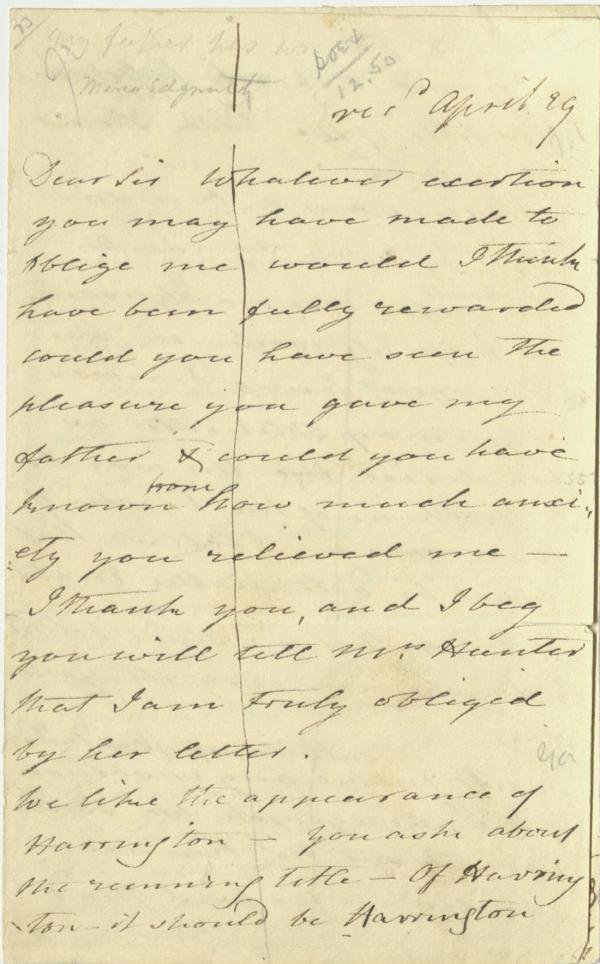 73
my father his
Maria Edgworth
12.50
rec.d April 29
Dear Sir Whatever exertion
you may have made to
oblige me would I think
have been fully rewarded
could you have seen the
pleasure you gave my
father & could you have
known from how much anxi-
ety you relieved me —
I thank you, and I beg
you will tell Mrs. Hunter
that I am truly obliged
by her letter.
We like the appearance of
Harrington — you ask about
the running title — Of Harring
ton — it should be Harrington